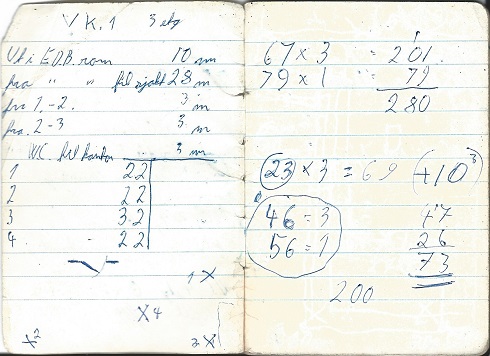 VK.1 3 etg
Ut i E.D.B. rom 10 m
fra " " til sjakt 28 m
fra 1.-2. 3 m
fra. 2-3 3 m
W.C. til 3 m
1 22
2 22
3 3.2
4. 22
1 X
X4
X² 2X
67 x 3 = 201
79 x 1 = 79
280
23 x 3 = 69 (+10³)
46 = 3
56 = 1
47
26
73
200